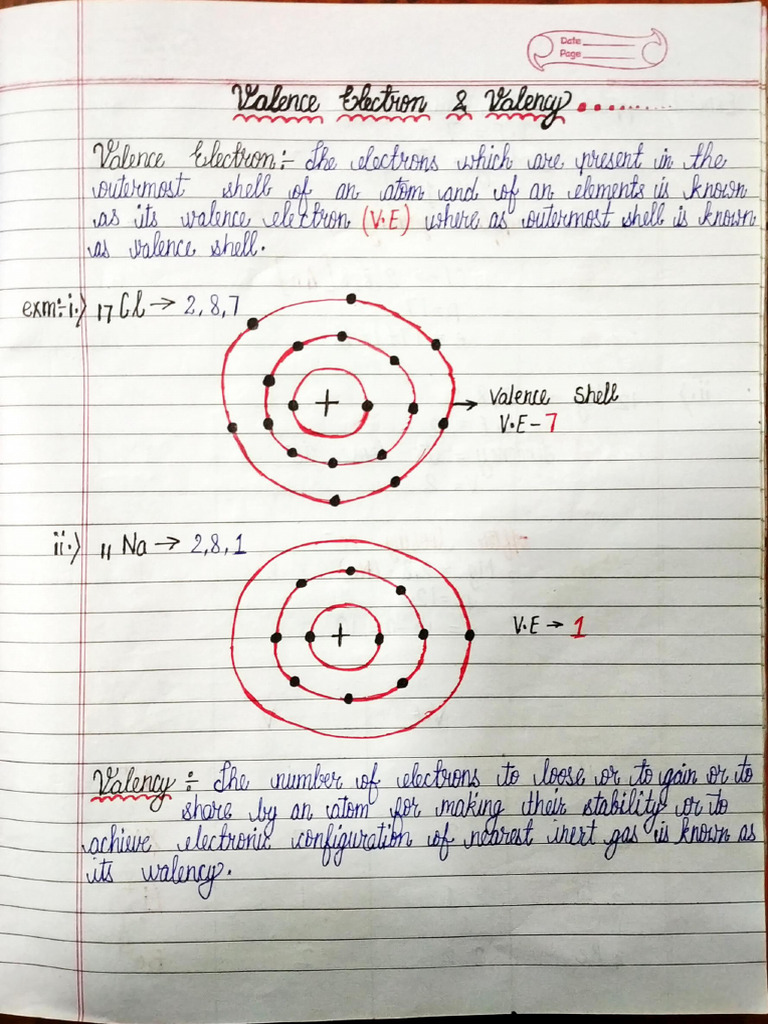 Date
Page
Valence Electron & Valency........
Valence Electron:- The electrons which are present in the
outermost shell of an atom and of an elements is known
as its valence electron (V.E) where as outermost shell is known
as valence shell.
exm:-i.) 17Cl → 2,8,7
+
→ Valence shell
V.E-7
ii.) 11Na → 2,8,1
+
V.E → 1
Valency :- The number of electrons to loose or to gain or to
share by an atom for making their stability or to
achieve electronic configuration of nearest inert gas is known as
its valency.